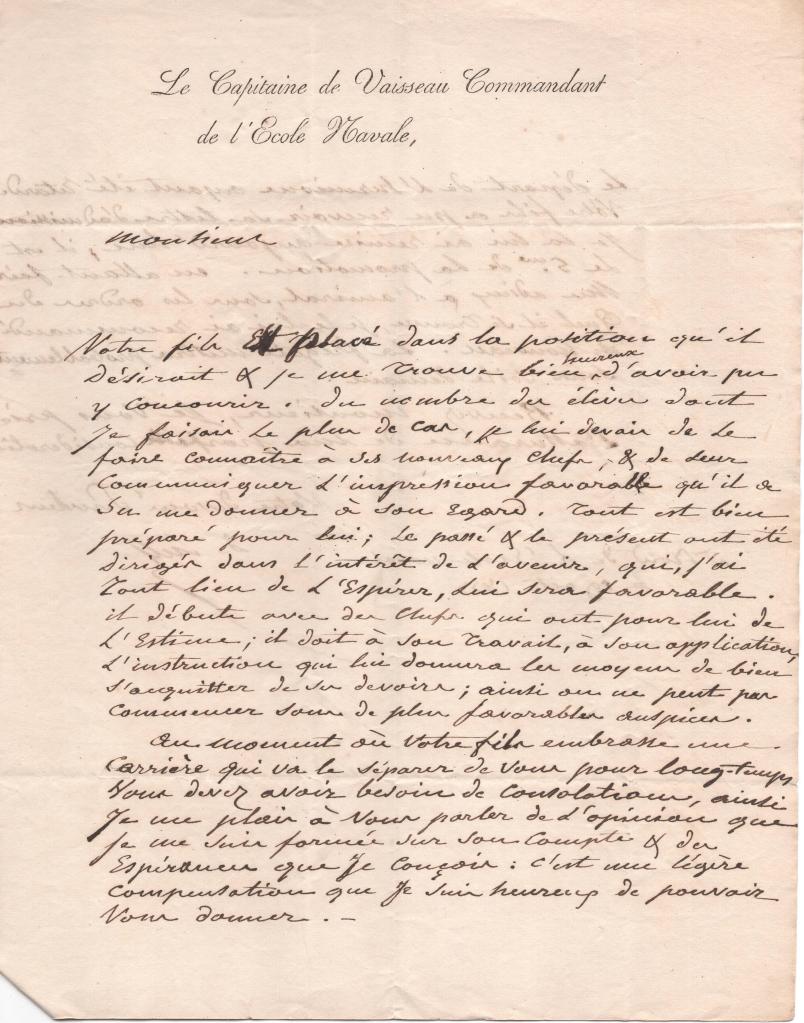 Le Capitaine de Vaisseau Commandant
de l'Ecole Navale,
Monsieur
Votre fils Est placé dans la position qu'il
Désirait & je me trouve bien heureux d'avoir pu
y concourir. du nombre des élèves dont
Je faisais le plus de cas, je lui devais de le
faire connoître à ses nouveaux chefs, & de leur
Communiquer L'impression favorable qu'il a
Su me donner à son Egard. Tout est bien
préparé pour lui; le passé & le présent ont été
Dirigés dans l'intérêt de l'avenir, qui, j'ai
Tout lieu de L'Espérer, Lui sera favorable.
il débute avec des Chefs qui ont pour lui de
L'Estime; il doit à son travail, à son application,
L'instruction qui lui donnera les moyens de bien
S'acquitter de ses devoirs; ainsi on ne peut pas
Commencer sous de plus favorables auspices.
Au moment où Votre fils embrasse une
Carrière qui va le séparer de vous pour long-temps
Vous devez avoir besoin de Consolations, ainsi
Je me plais à Vous parler de l'opinion que
je me suis formée sur son Compte & des
Espérances que Je conçois: c'est une légère
Compensation que Je suis heureux de pouvoir
Vous donner. —